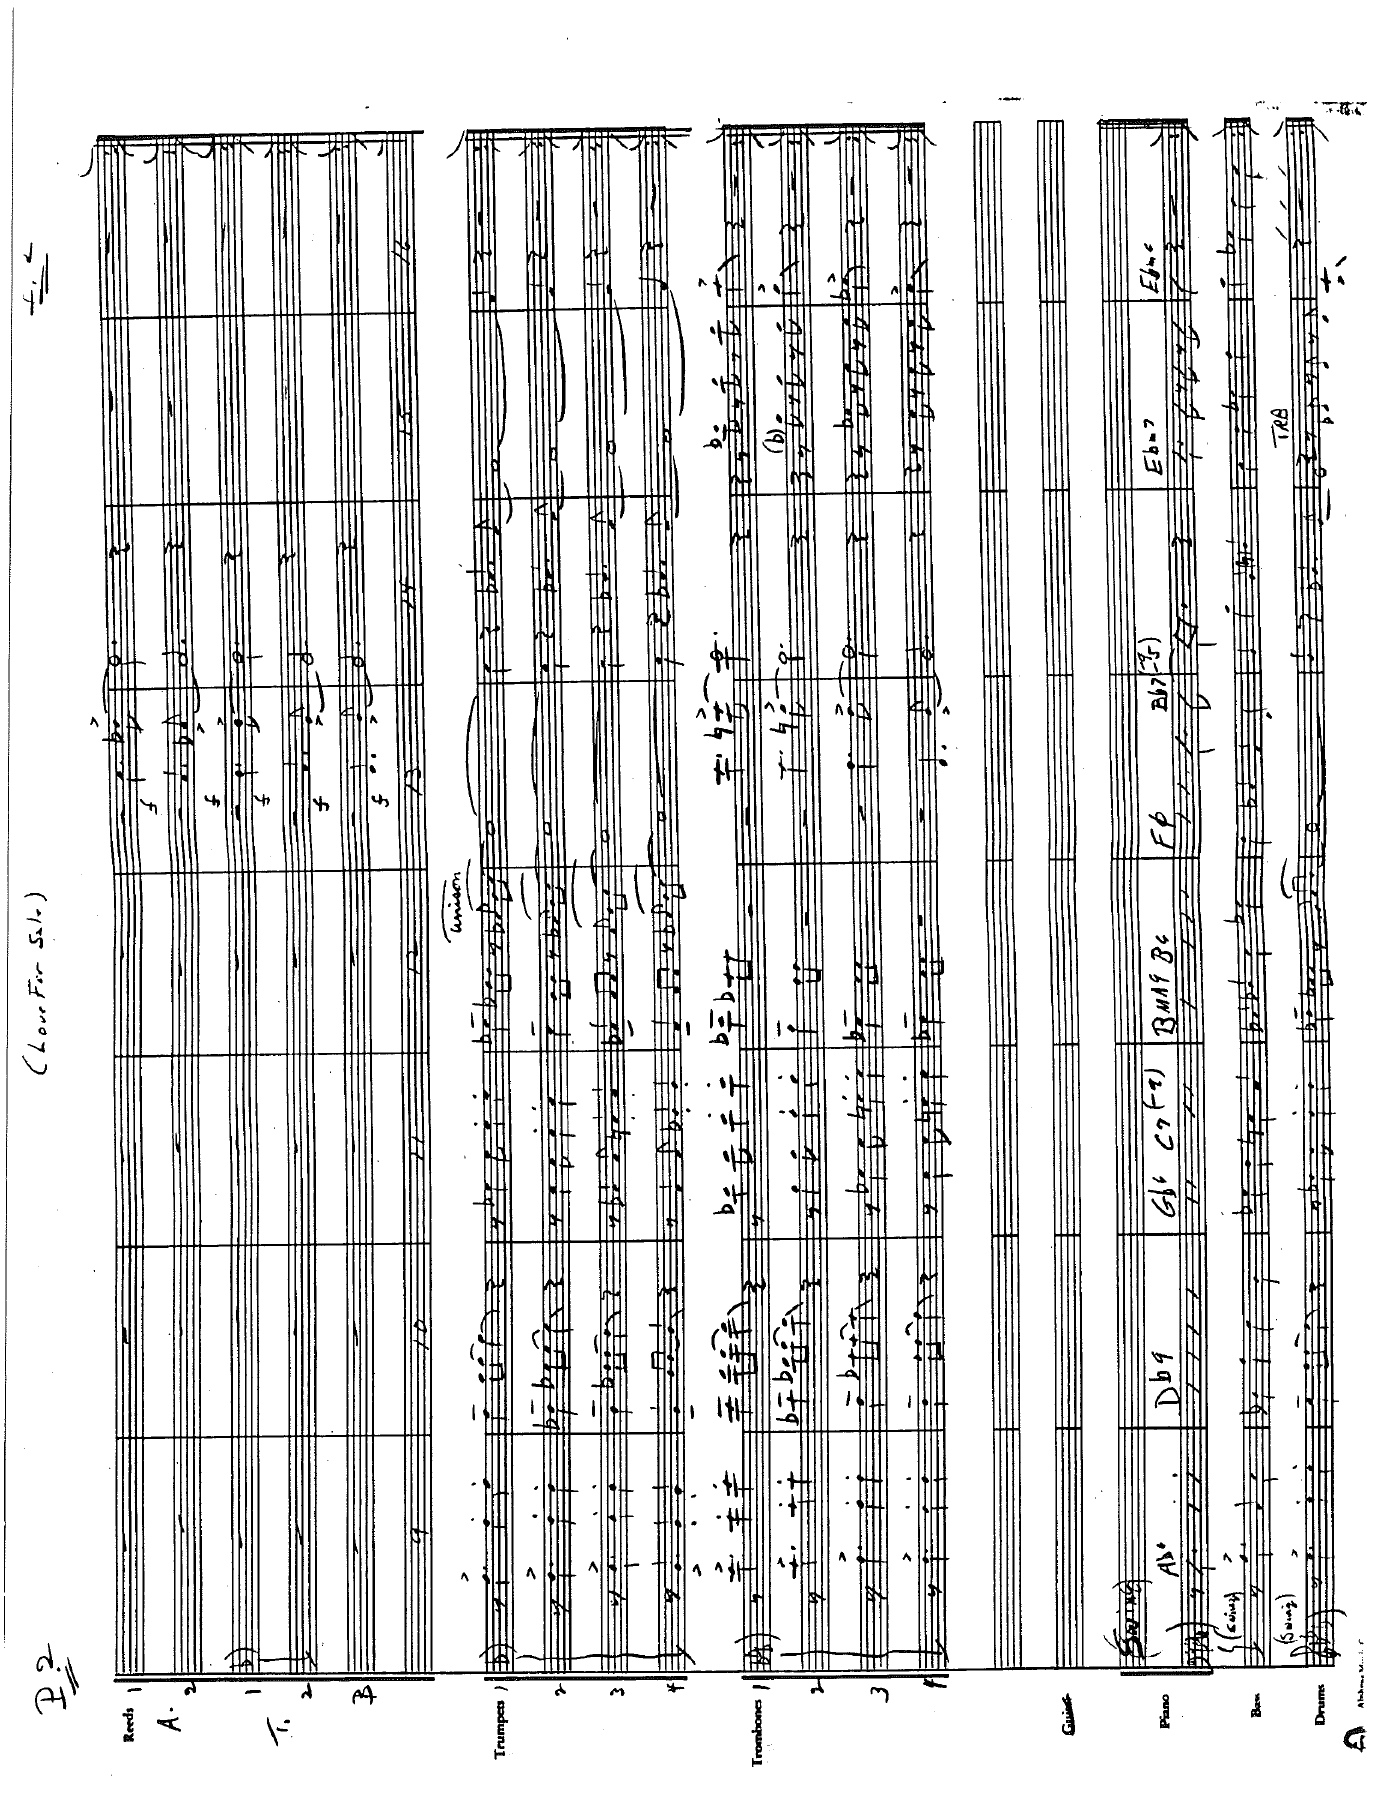 P.2
(Love For Sale)
Reeds
A. 1
2
T. 1
2
B
f f f f f
9 10 11 12 13 14 15 16
Trumpets 1
2
3
4
Unison
Trombones 1
2
3
4
Guitar
Piano
(Swing)
Ab6 Db9 Gb6 C7(-9) BMA9 B6 Fø Bb7(-9 -5) Ebm7 Ebm6
Bass
(Swing)
Drums
(Swing)
TRB